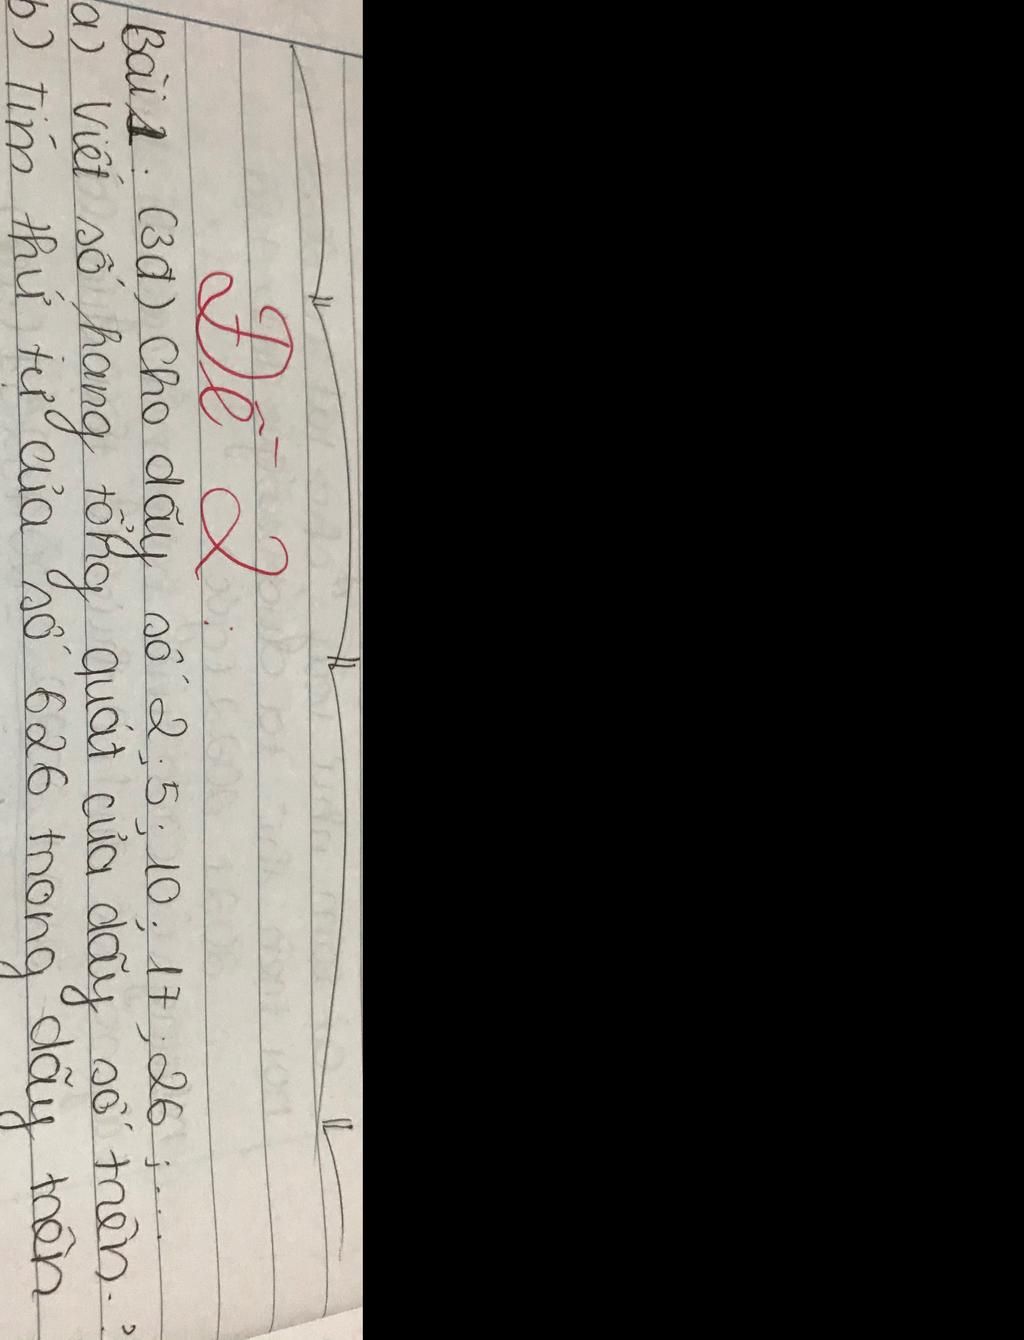 Đề 2
Bài 1. (3đ) Cho dãy số 2; 5; 10; 17; 26; ...
a) Viết số hạng tổng quát của dãy số trên.
b) Tìm thứ tự của số 626 trong dãy trên